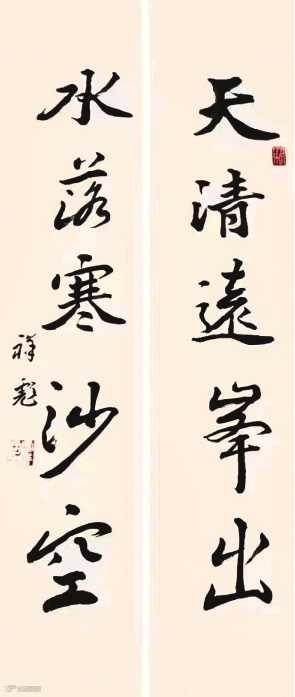 天清遠峯出
水落寒沙空
祥彪